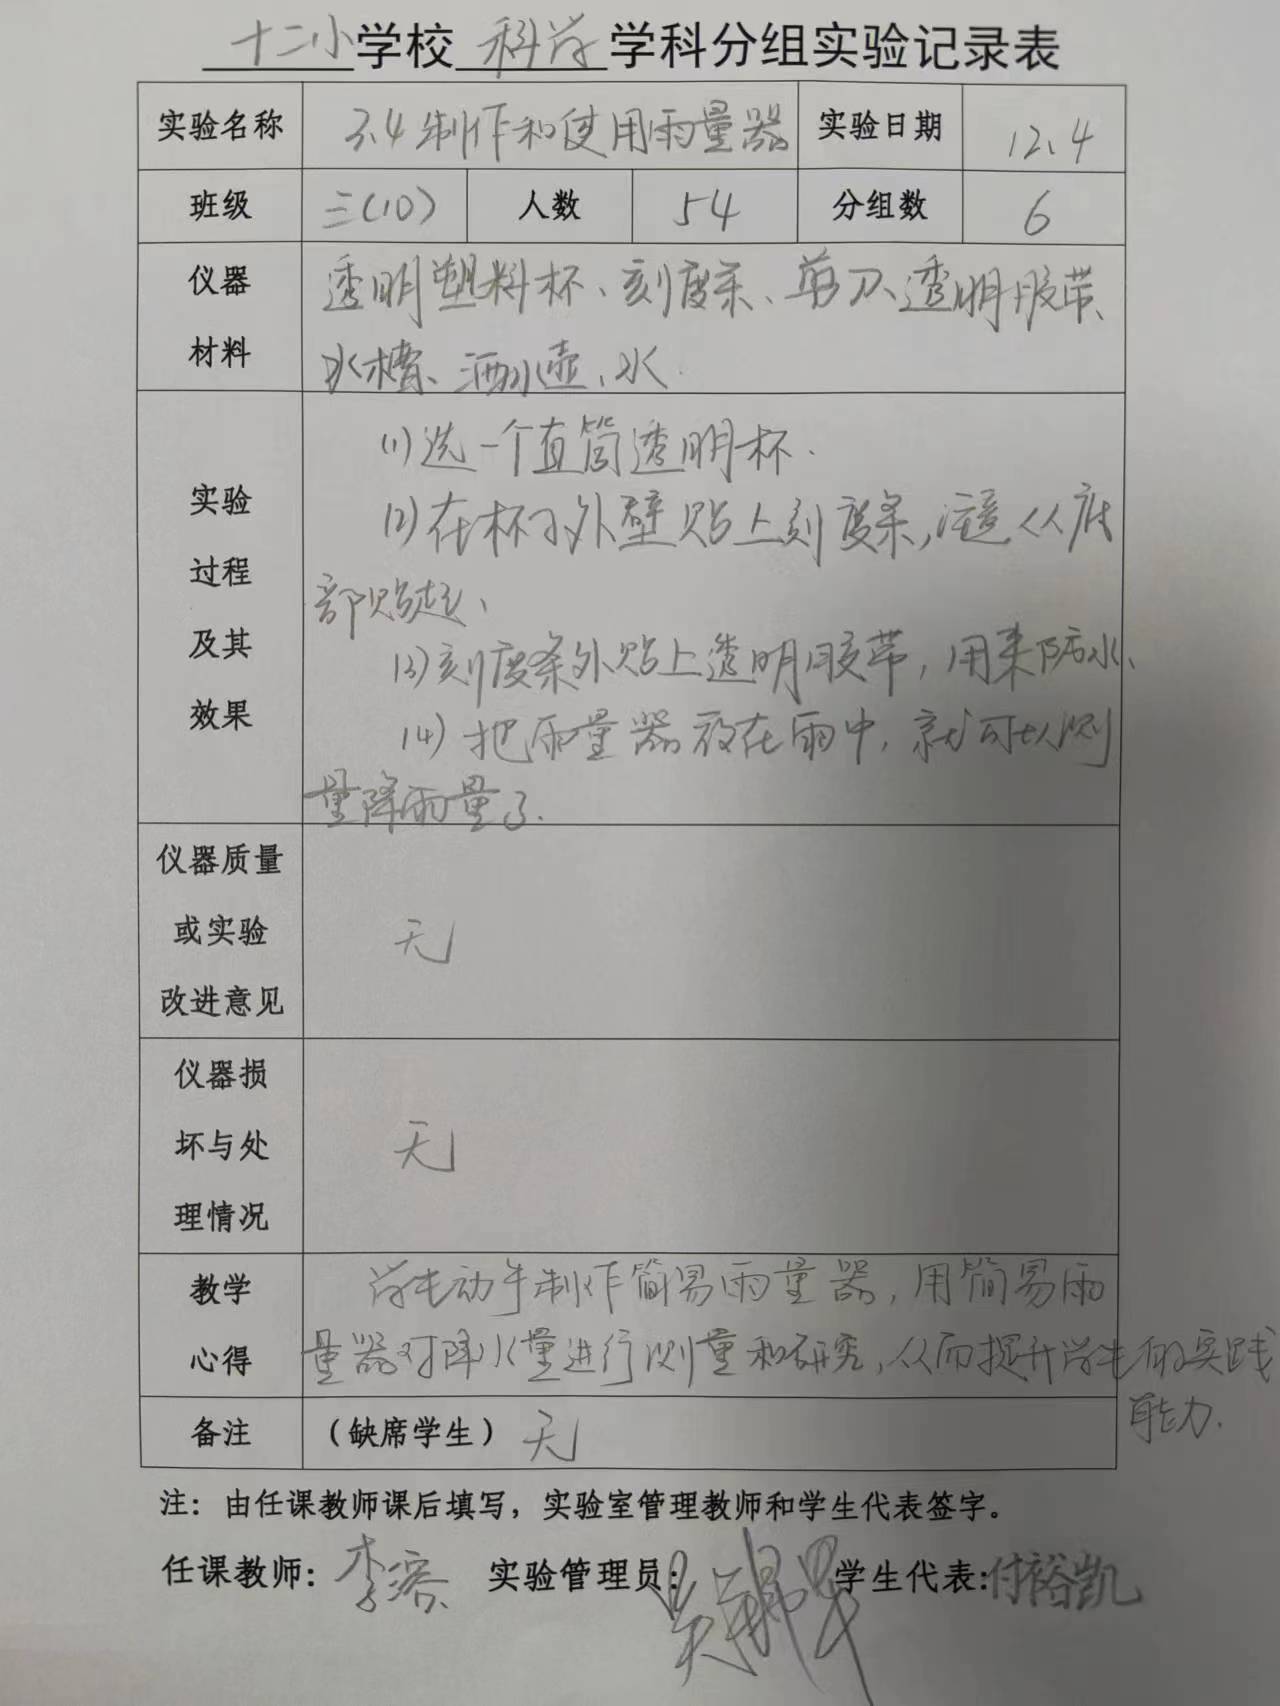 十二小学校 科学 学科分组实验记录表
实验名称 3.4制作和使用雨量器 实验日期 12.4
班级 三(10) 人数 54 分组数 6
仪器 透明塑料杯、刻度条、剪刀、透明胶带、
材料 水槽、洒水壶、水.
(1)选一个直筒透明杯.
(2)在杯子外壁贴上刻度条,注意从底
部贴起、
(3)刻度条外贴上透明胶带,用来防水、
(4)把雨量器放在雨中,就可以测
量降雨量了.
实验
过程
及其
效果
仪器质量
或实验
改进意见
无
仪器损
坏与处
理情况
无
教学 学生动手制作简易雨量器,用简易雨
心得 量器对降水量进行测量和研究,从而提升学生的实践
能力.
备注 (缺席学生) 无
注：由任课教师课后填写，实验室管理教师和学生代表签字。
任课教师: 李溶 实验管理员: 学生代表: 付裕凯